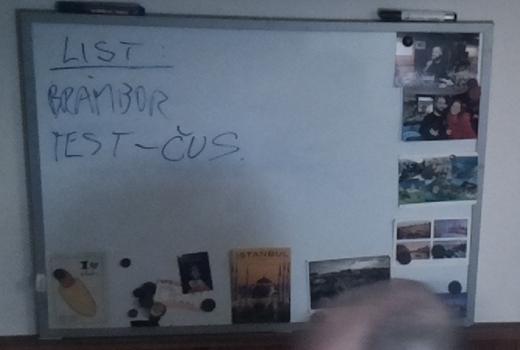 LIST:
BRAMBOR
TEST-ČUS.
ISTANBUL